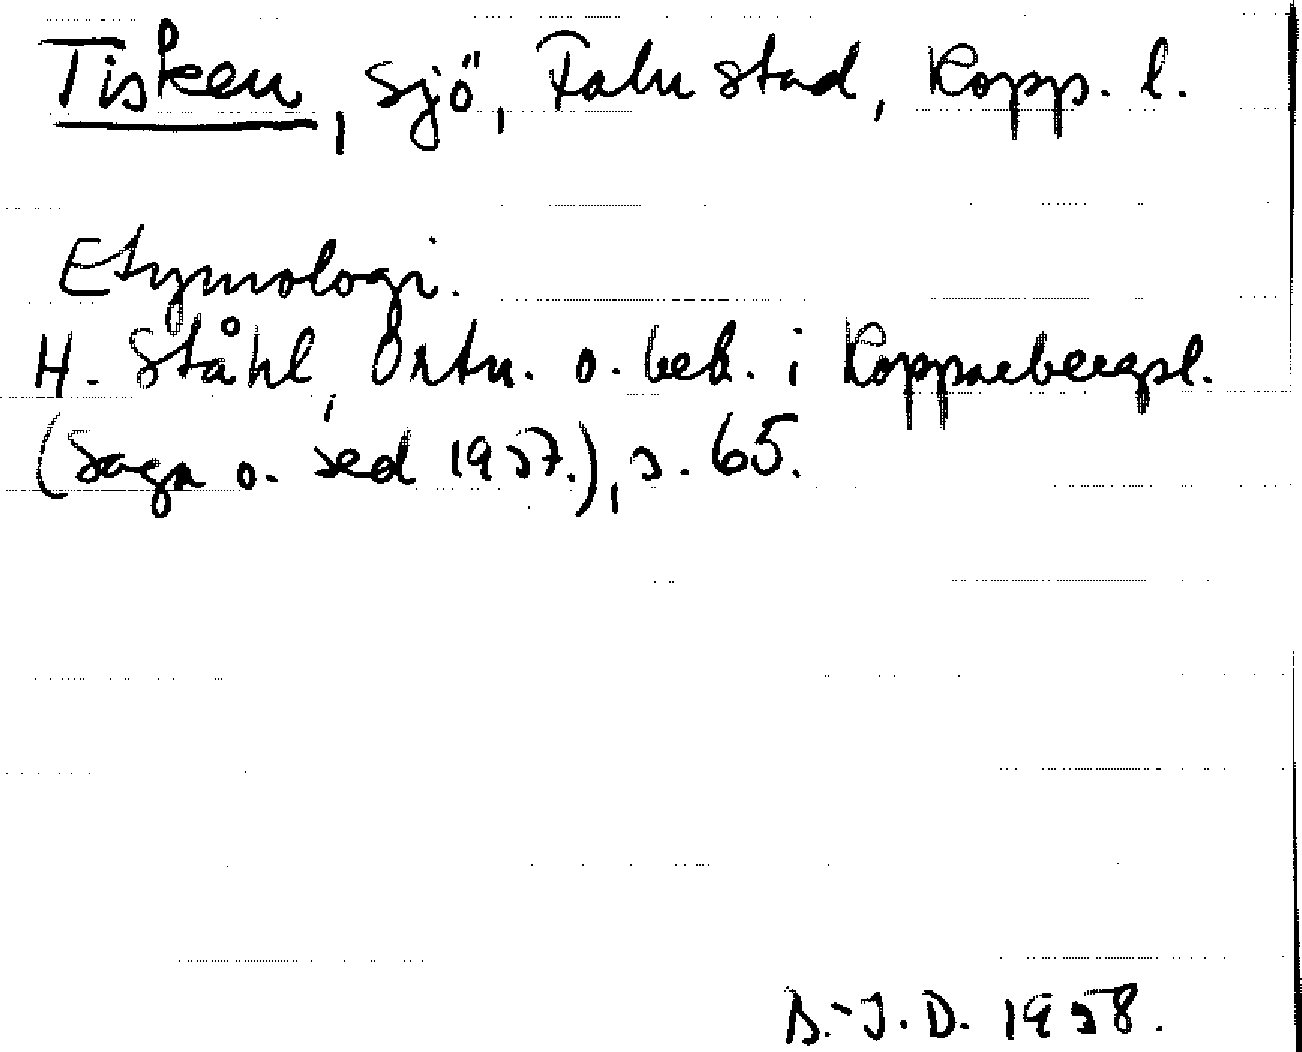 Tisken, sjö, Falu stad, Kopp. l.
Etymologi.
H. Ståhl, Ortn. o. beb. i Kopparbergsl.
(Saga o. sed 1957.), s. 65.
B.-J.D. 1958.